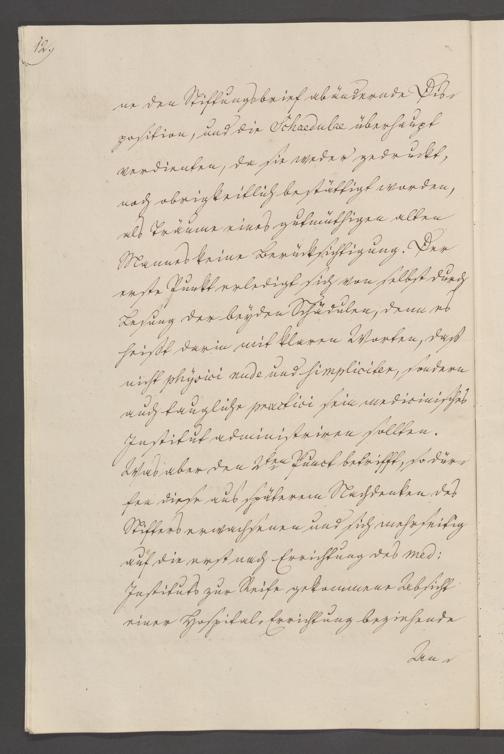 12.
ne den Stiftungsbrief abändernde Dis-
position, und die Schaedulae überhaupt
verdienten, da sie weder gedruckt,
noch obrigkeitlich bestättigt worden,
als Träume eines gutmüthigen alten
Mannes keine Berücksichtigung. Der
erste Punkt erledigt sich von selbst durch
Lesung der beyden Schädulen, denn es
heißt darin mit klaren Worten, daß
nicht physici nude und simpliciter, sondern
auch taugliche practici sein medicinisches
Institut administriren sollten.
Was aber den 2ten Punct betrifft, so dür-
fen diese aus späterem Nachdenken des
Stifters erwachsenen und sich mehrseitig
auf die erst nach Errichtung des med:
Instituts zur Reife gekommene Absicht
einer Hospital-Errichtung beziehende
An-